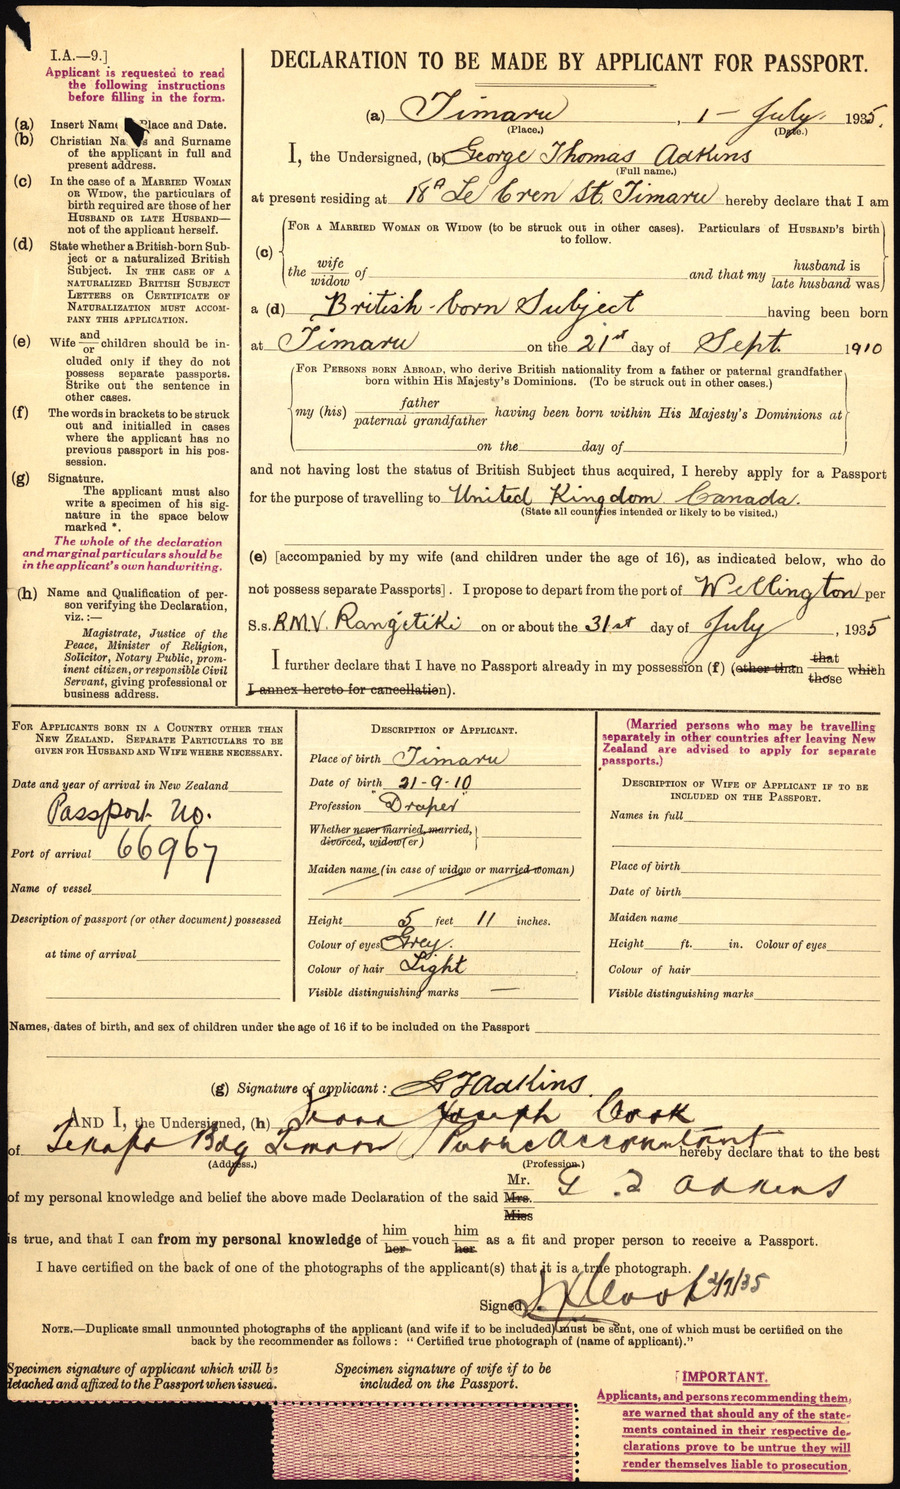 I.A.—9.]
Applicant is requested to read
the following instructions
before filling in the form.
(a) Insert Name Place and Date.
(b) Christian Na s and Surname
of the applicant in full and
present address.
(c) In the case of a MARRIED WOMAN
OR WIDOW, the particulars of
birth required are those of her
HUSBAND OR LATE HUSBAND—
not of the applicant herself.
(d) State whether a British-born Sub-
ject or a naturalized British
Subject. IN THE CASE OF A
NATURALIZED BRITISH SUBJECT
LETTERS OR CERTIFICATE OF
NATURALIZATION MUST ACCOM-
PANY THIS APPLICATION.
(e) Wife and/or children should be in-
cluded only if they do not
possess separate passports.
Strike out the sentence in
other cases.
(f) The words in brackets to be struck
out and initialled in cases
where the applicant has no
previous passport in his pos-
session.
(g) Signature.
The applicant must also
write a specimen of his sig-
nature in the space below
marked *.
The whole of the declaration
and marginal particulars should be
in the applicant's own handwriting.
(h) Name and Qualification of per-
son verifying the Declaration,
viz. :—
Magistrate, Justice of the
Peace, Minister of Religion,
Solicitor, Notary Public, prom-
inent citizen, or responsible Civil
Servant, giving professional or
business address.
DECLARATION TO BE MADE BY APPLICANT FOR PASSPORT.
(a) Timaru, 1 - July. 1935.
(Place.) (Date.)
I, the Undersigned, (b) George Thomas Adkins
(Full name.)
at present residing at 18A Le Cren St. Timaru hereby declare that I am
(c) FOR A MARRIED WOMAN OR WIDOW (to be struck out in other cases). Particulars of HUSBAND'S birth
to follow.
the wife/widow of and that my husband is/late husband was
a (d) British-born Subject having been born
at Timaru on the 21st day of Sept. 1910
FOR PERSONS BORN ABROAD, who derive British nationality from a father or paternal grandfather
born within His Majesty's Dominions. (To be struck out in other cases.)
my (his) father/paternal grandfather having been born within His Majesty's Dominions at
on the day of
and not having lost the status of British Subject thus acquired, I hereby apply for a Passport
for the purpose of travelling to United Kingdom Canada.
(State all countries intended or likely to be visited.)
(e) [accompanied by my wife (and children under the age of 16), as indicated below, who do
not possess separate Passports]. I propose to depart from the port of Wellington per
S.s. R.M.V. Rangitiki on or about the 31st day of July, 1935
I further declare that I have no Passport already in my possession (f) (other than that/those which
I annex hereto for cancellation).
FOR APPLICANTS BORN IN A COUNTRY OTHER THAN
NEW ZEALAND. SEPARATE PARTICULARS TO BE
GIVEN FOR HUSBAND AND WIFE WHERE NECESSARY.
Date and year of arrival in New Zealand
Passport No.
Port of arrival 66967
Name of vessel
Description of passport (or other document) possessed
at time of arrival
DESCRIPTION OF APPLICANT.
Place of birth Timaru
Date of birth 21-9-10
Profession "Draper"
Whether never married, married,
divorced, widow(er)
Maiden name (in case of widow or married woman)
Height 5 feet 11 inches.
Colour of eyes Grey.
Colour of hair Light
Visible distinguishing marks —
(Married persons who may be travelling
separately in other countries after leaving New
Zealand are advised to apply for separate
passports.)
DESCRIPTION OF WIFE OF APPLICANT IF TO BE
INCLUDED ON THE PASSPORT.
Names in full
Place of birth
Date of birth
Maiden name
Height ft. in. Colour of eyes
Colour of hair
Visible distinguishing marks
Names, dates of birth, and sex of children under the age of 16 if to be included on the Passport
(g) Signature of applicant : G T Adkins.
AND I, the Undersigned, (h) Joseph Cook
of Tekapo Bdg Timaru Public Accountant hereby declare that to the best
(Address.) (Profession.)
of my personal knowledge and belief the above made Declaration of the said Mr. Mrs. Miss G. T. Adkins
is true, and that I can from my personal knowledge of him/her vouch him/her as a fit and proper person to receive a Passport.
I have certified on the back of one of the photographs of the applicant(s) that it is a true photograph.
Signed Cook 2/7/35
NOTE.—Duplicate small unmounted photographs of the applicant (and wife if to be included) must be sent, one of which must be certified on the
back by the recommender as follows : " Certified true photograph of (name of applicant)."
Specimen signature of applicant which will be
detached and affixed to the Passport when issued.
Specimen signature of wife if to be
included on the Passport.
[IMPORTANT.
Applicants, and persons recommending them,
are warned that should any of the state-
ments contained in their respective de-
clarations prove to be untrue they will
render themselves liable to prosecution.